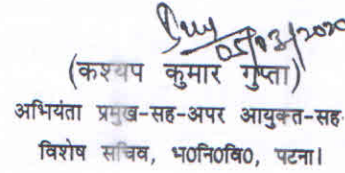 05/03/2020
(कश्यप कुमार गुप्ता)
अभियंता प्रमुख-सह-अपर आयुक्त-सह-
विशेष सचिव, भ0नि0वि0, पटना।